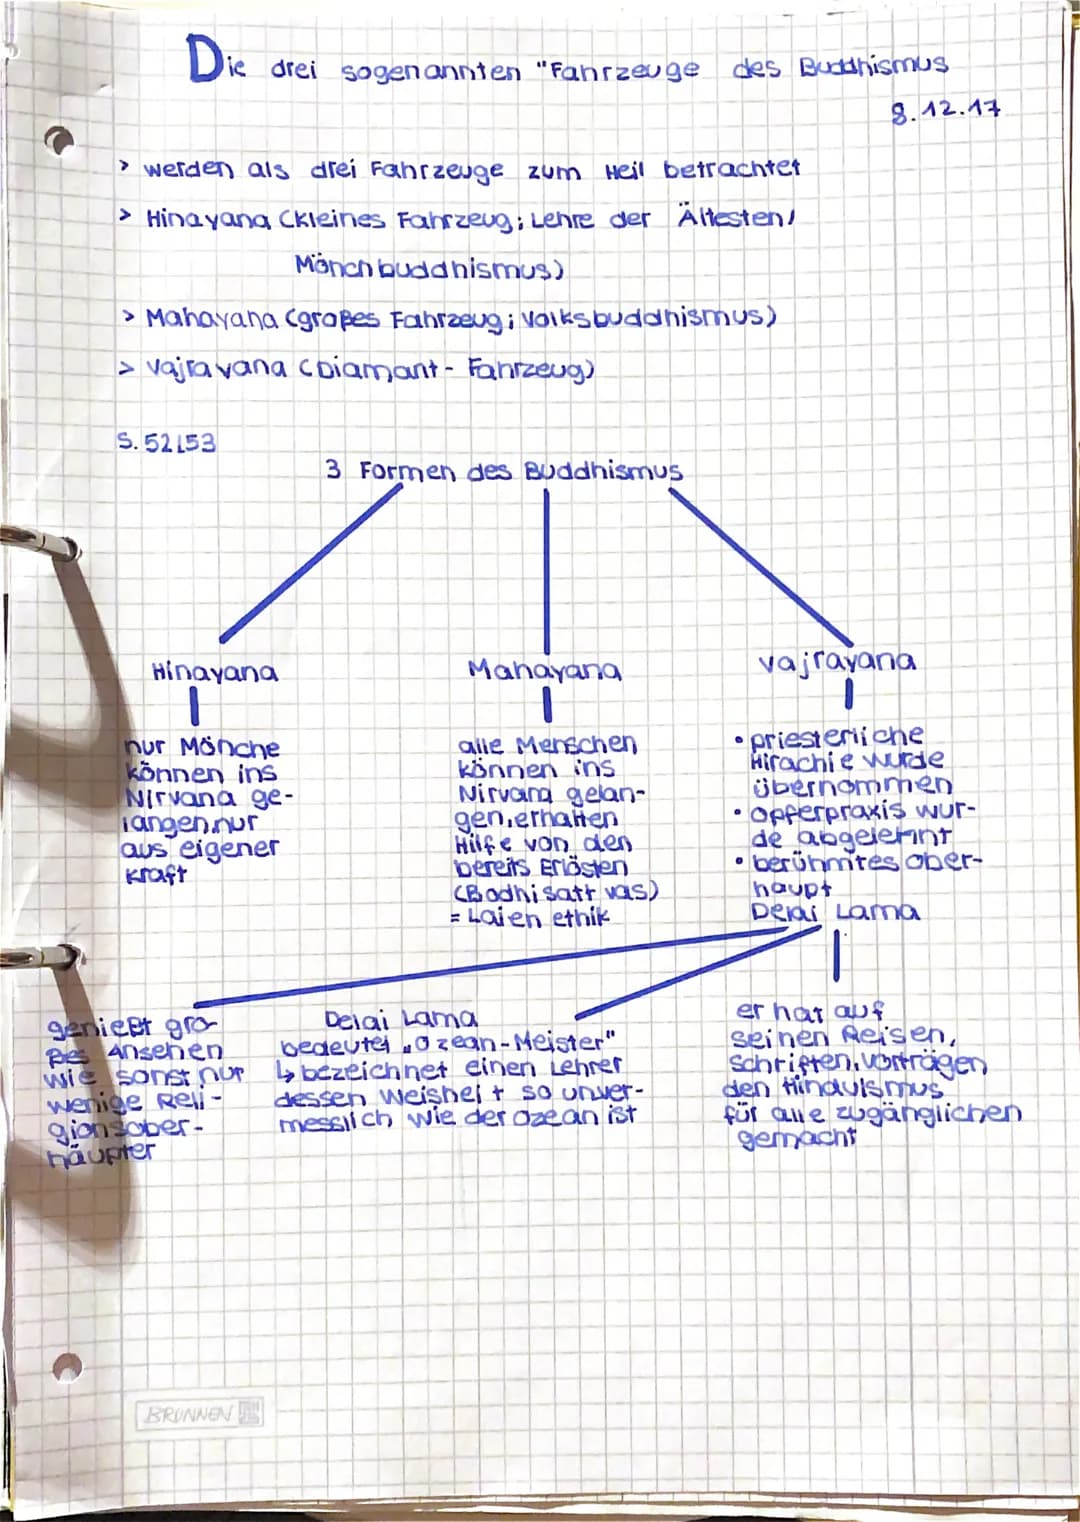 Die drei sogenannten "Fahrzeuge des Buddhismus
8.12.17
> werden als drei Fahrzeuge zum Heil betrachtet
> Hinayana (kleines Fahrzeug; Lehre der Ältesten/
Mönchbuddhismus)
> Mahayana (großes Fahrzeug; Volksbuddhismus)
> Vajrayana (Diamant- Fahrzeug)
S. 52/53
3 Formen des Buddhismus
Hinayana
nur Mönche
können ins
Nirvana ge-
langen, nur
aus eigener
kraft
Mahayana
alle Menschen
können ins
Nirvana gelan-
gen, erhalten
Hilfe von den
bereits Erlösten
(Bodhisattvas)
= Laien ethik
Vajrayana
• priesterliche
Hirachie wurde
übernommen
• Opferpraxis wur-
de abgelehnt
• berühmtes ober-
haupt
Delai Lama
genießt gro-
ßes Ansehen
wie sonst nur
wenige Reli-
gionsober-
häupter
Delai Lama
bedeutet „Ozean-Meister"
↳ bezeichnet einen Lehrer
dessen Weisheit so unver-
messlich wie der Ozean ist
er hat auf
seinen Reisen,
Schriften, Vorträgen
den Hinduismus
für alle zugänglichen
gemacht
BRUNNEN